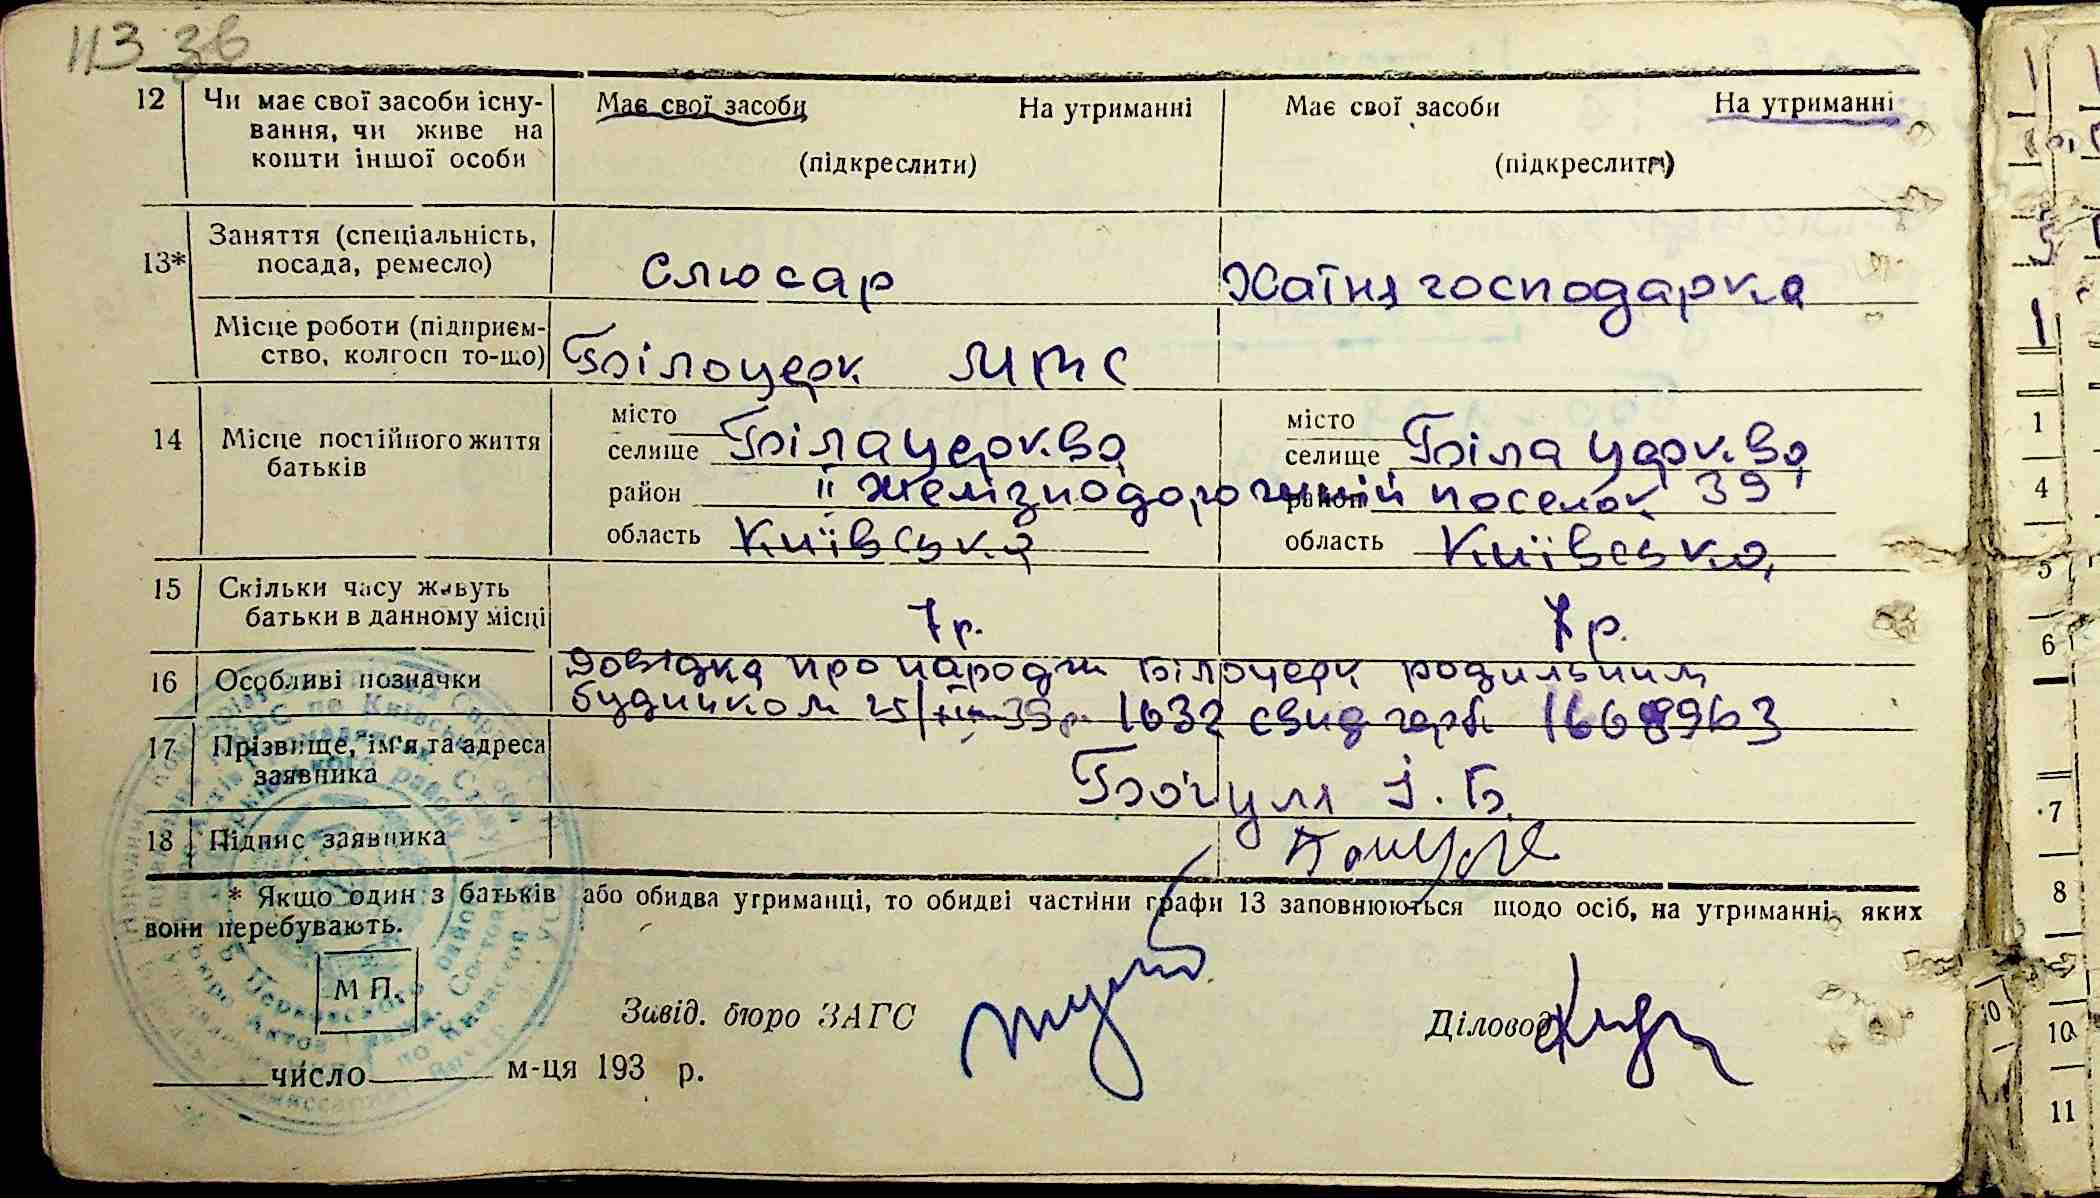 113 зв
12 Чи має свої засоби існу- Має свої засоби На утриманні Має свої засоби На утриманні
вання, чи живе на
кошти іншої особи (підкреслити) (підкреслити)
13* Заняття (спеціальність,
посада, ремесло) Слюсар Хатня господарка
Місце роботи (підприєм-
ство, колгосп то-що) Білоцерк МТС
14 Місце постійного життя
батьків
місто місто
селище Біла церква селище Біла церква
район II желізнодорожний район поселок 39
область Київська область Київська
15 Скільки часу живуть
батьки в данному місці 7 р. 7 р.
16 Особливі позначки Довідка про народж Білоцерк родильним
будинком 25/ 39р. 1632 свид герб
17 Прізвище, ім'я та адреса
заявника І. Б.
18 Підпис заявника
* Якщо один з батьків або обидва утриманці, то обидві частини графи 13 заповнюються щодо осіб, на утриманні яких
вони перебувають.
М П.
Завід. бюро ЗАГС Діловод
число м-ця 193 р.
1
4
5
6
7
8
10
11